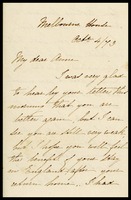 Melbourne House
Oct 4/73
My dear Annie
I was very glad
to hear by your letter this
morning that you are
better again, but I can
see you are still very weak
but I hope you will feel
the benefit of your stay
in England after your
return home. I had